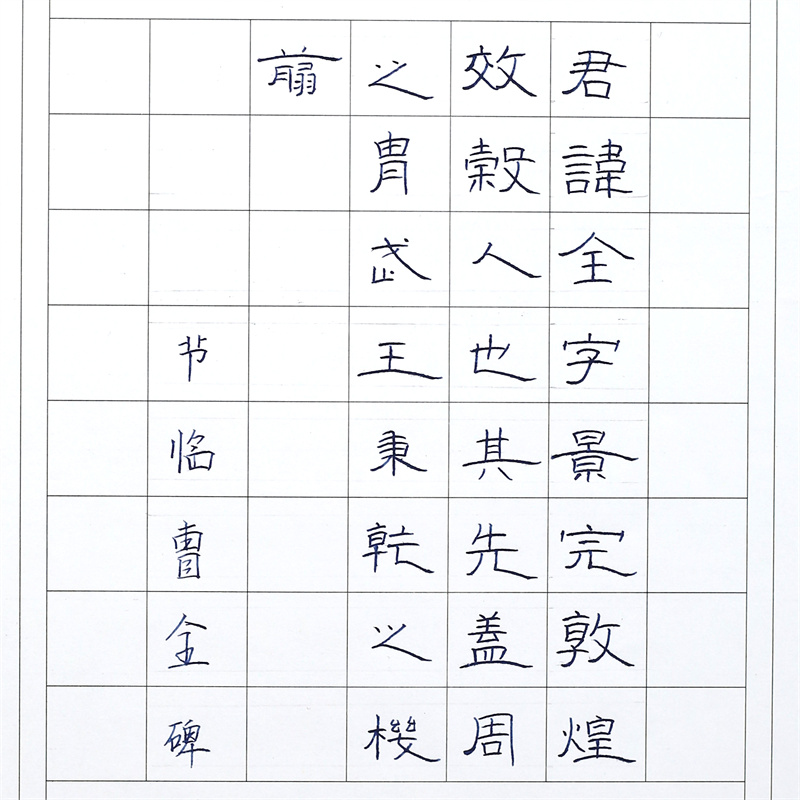 君諱全字景完敦煌
效穀人也其先蓋周
之胄武王秉乾之機
翦
节临曹全碑